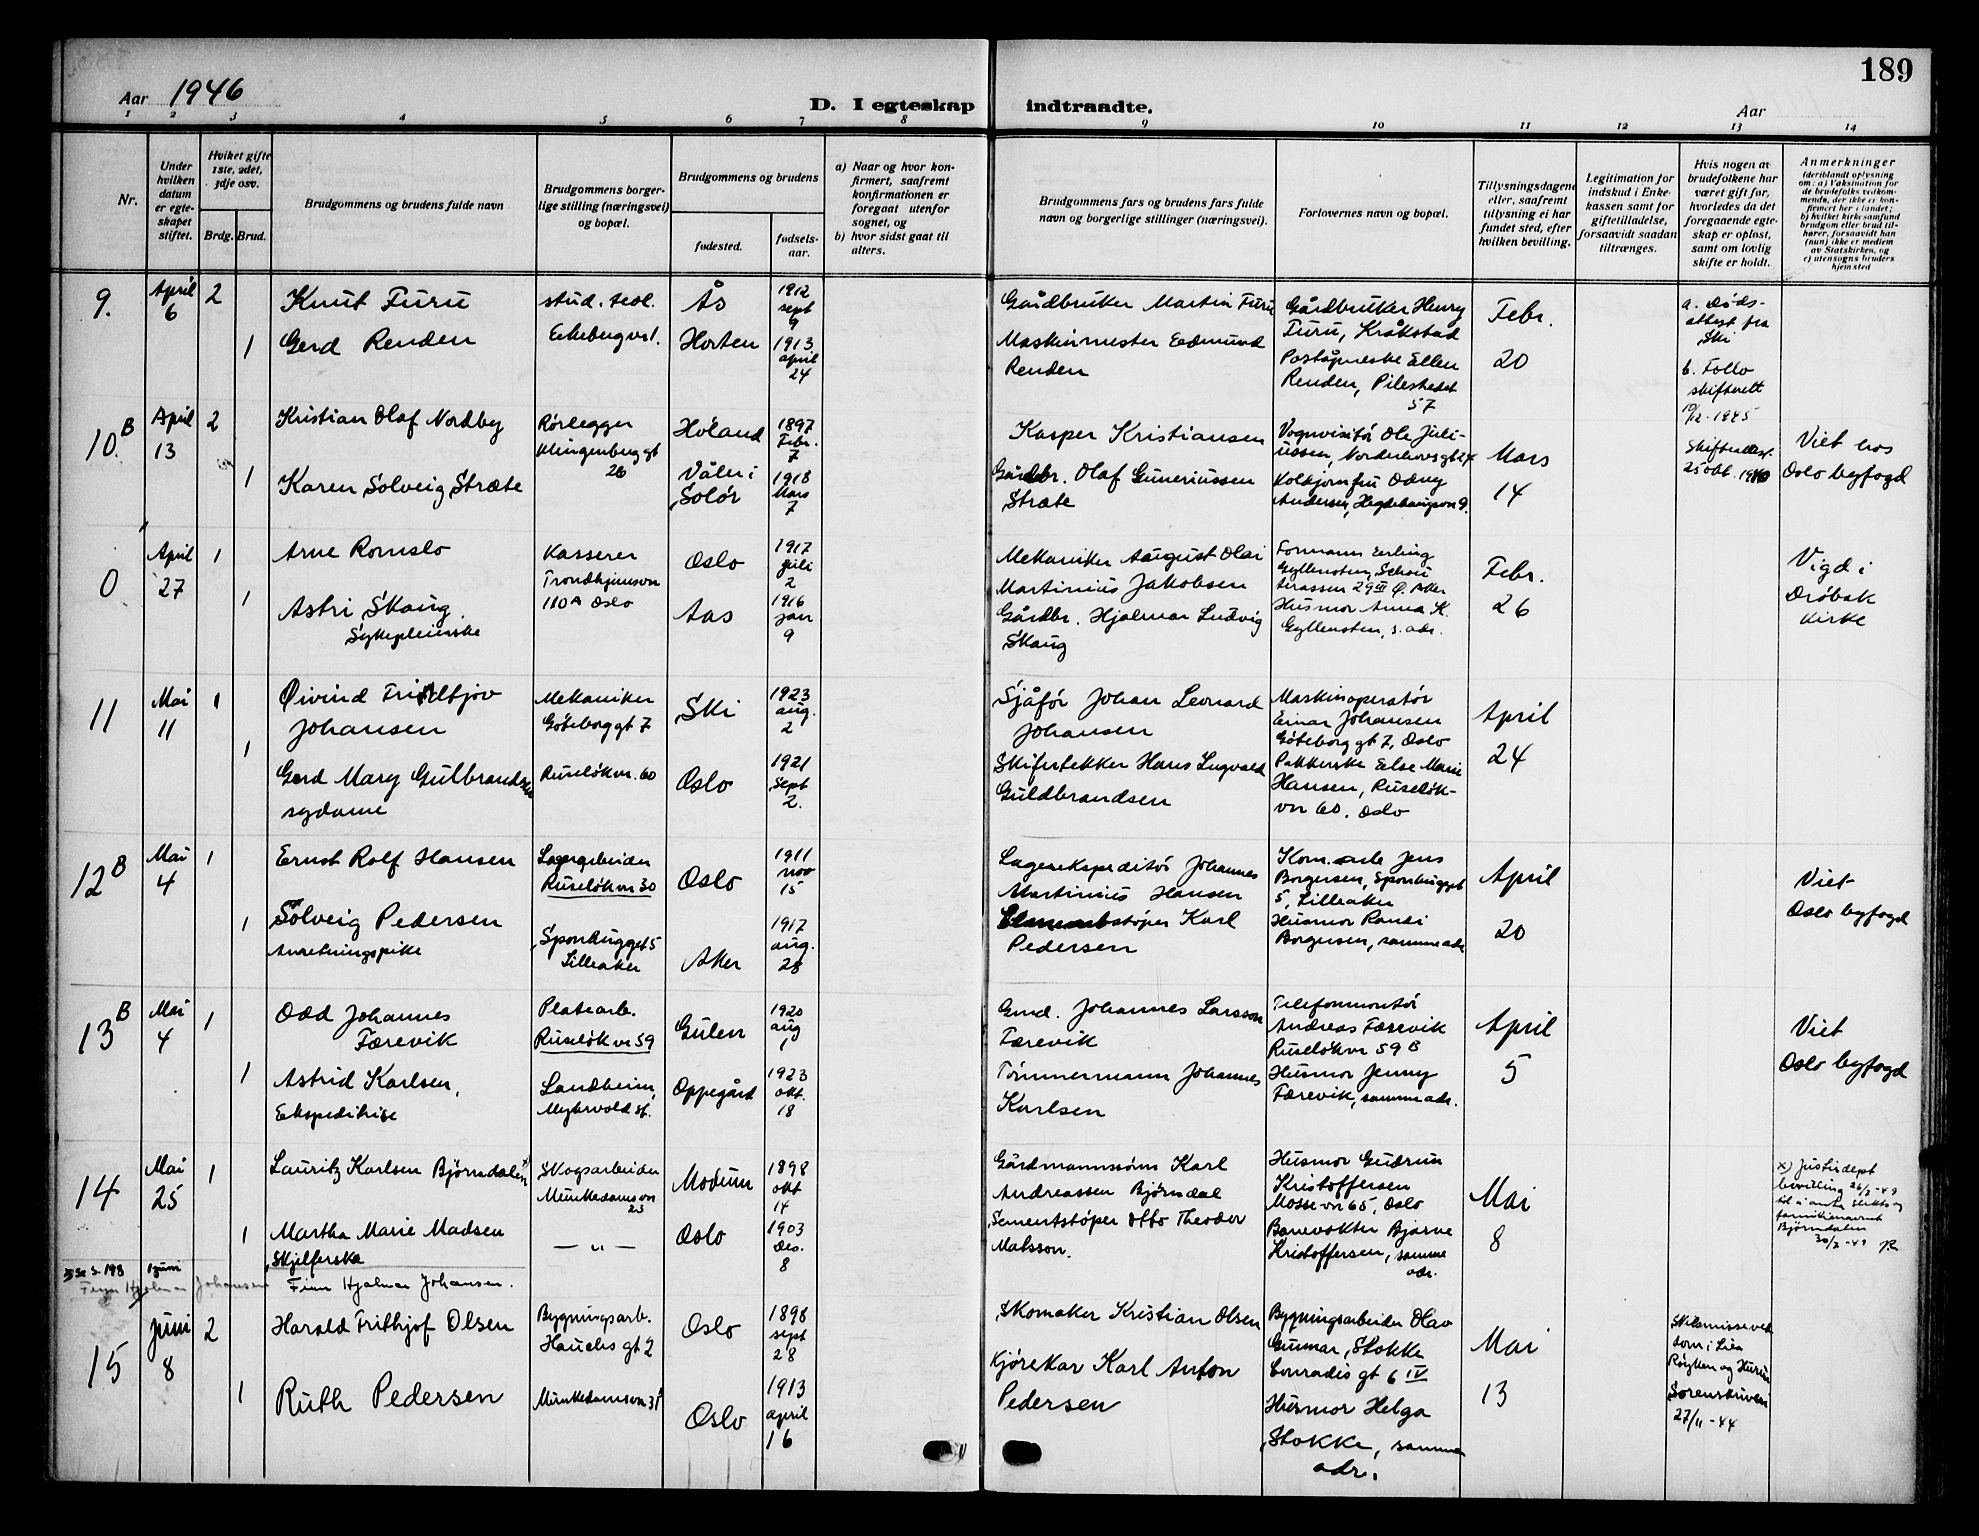 189
Aar 1946
D. I egteskap indtraadte.
Aar
1 2 3 4 5 6 7 8 9 10 11 12 13 14
Nr.
Under hvilken datum er egteskapet stiftet.
Hvilket gifte 1ste, 2det, 3dje osv.
Brdg. Brud.
Brudgommens og brudens fulde navn
Brudgommens borgerlige stilling (næringsvei) og bopæl.
Brudgommens og brudens
fødested.
fødselsaar.
a) Naar og hvor konfirmert, saafremt konfirmationen er foregaat utenfor sognet, og
b) hvor sidst gaat til alters.
Brudgommens fars og brudens fars fulde navn og borgerlige stillinger (næringsvei).
Forlovernes navn og bopæl.
Tillysningsdagene eller, saafremt tillysning ei har fundet sted, efter hvilken bevilling.
Legitimation for indskud i Enkekassen samt for giftetilladelse, forsaavidt saadan tiltrænges.
Hvis nogen av brudefolkene har været gift før, hvorledes da det foregaaende egteskap er opløst, samt om lovlig skifte er holdt.
Anmerkninger (deriblandt oplysning om: a) Vaksination for de brudefolks vedkommende, der ikke er konfirmert her i landet; b) hvilket kirkesamfund brudgom eller brud tilhører, forsaavidt han (hun) ikke er medlem av Statskirken, og c) utensogns bruders hjemsted
9. April 6 2 Knut Furu stud. teol. Ås 1912 sept 9 Gårdbruker Martin Furu Gårdbruker Henry Furu, Kråkstad Febr. 20 a. Dødsattest fra Ski
1 Gerd Renden Ekebergvn 1. Horten 1913 april 24 Maskinmester Edmund Renden Ellen Renden, Pilestredet 57 b. Follo skifterett 10/12-1945
10.B April 13 2 Kristian Olaf Nordby Rørlegger Klingenberg gt 26 Høland 1897 Febr. 7 Kasper Kristiansen Vognvisitør Ole Juliussen, Mars 14 25 okt. 1940 Viet hos Oslo byfogd
1 Karen Solveig Stræte Våler i Solør 1918 Mars 7 Gårdbr. Olaf Guneriussen Stræte Odny Andersen,
0 April 27 1 Arne Romslo Kasserer Trondhjemsvn 110A Oslo Oslo 1917 juli 2 Mekaniker August Olai Martinius Jakobsen Formann Erling Gyllensten, Febr. 26 Vigd i Drøbak kirke
1 Astri Skaug. Sykepleierske Aas 1916 jan 9 Gårdbr. Hjalmar Ludvig Skaug Husmor Anna K. Gyllensten, s. adr.
11 Mai 11 1 Øivind Fridtjov Johansen Mekaniker Göteborg gt 7 Ski 1923 aug. 2 Sjåfør Johan Leonard Johansen Maskinoperatør Einar Johansen Göteborg gt 7, Oslo April 24
1 Gerd Mary Gulbrandsen sydame Ruseløkvn. 60 Oslo 1921 Sept 2. Skifertekker Hans Ingvald Guldbrandsen Pakkerske Else Marie Hansen, Ruseløkvn 60. Oslo
12B Mai 4 1 Ernst Rolf Hansen Lagerarbeider Ruseløkvn 30 Oslo 1911 nov 15 Lagerekspeditør Johannes Martinius Hansen Jens Borgersen, Sponhugget 5, Lilleaker April 20 Viet Oslo byfogd
1 Solveig Pedersen Anretningspike Sponhugget 5 Lilleaker Aker 1917 aug. 28 Karl Pedersen Husmor Randi Borgersen, samme adr
13B Mai 4 1 Odd Johannes Færevik Platearb. Ruseløkvn 59 Gulen 1920 aug 1 Gmd. Johannes Larsson Færevik Telefonmontør Andreas Færevik Ruseløkvn 59 B April 5 Viet Oslo byfogd
1 Astrid Karlsen, Ekspeditrise Landheim, Myhrvold st. Oppegård 1923 okt. 18 Tømmermann Johannes Karlsen Husmor Jenny Færevik, samme adr.
14 Mai 25 1 Lauritz Karlsen Bjørnsdalen x) Skogsarbeider Munkedamsvn 23 Modum 1898 okt 14 Gårdmannssønn Karl Andreassen Bjørnsdal Husmor Gudrun Kristoffersen Mosse-vn 65, Oslo Mai 8 x) Justisdept bevilling familienavnet Bjørndalen
1 Martha Marie Madsen Skjelferska — " — Oslo 1903 Des. 8 Sementstøper Otto Theodor Matsson. Banevokter Bjarne Kristoffersen, samme adr.
Se S. 198 1 juni Finn Hjalmar Johansen Finn Hjalmar Johansen.
15 Juni 8 2 Harald Frithjof Olsen Bygningsarb. Hauchs gt 2 Oslo 1898 sept 28 Skomaker Kristian Olsen Bygningsarbeider Olav Gunnar Stokke Conradis gt 6 IV Mai 13 Lier Røyken og Hurum Sorenskriveri 27/11-44
1 Ruth Pedersen Munkedamsvn 31 Oslo 1913 april 16 Kjørekar Karl Anton Pedersen Husmor Helga Stokke, samme adr.